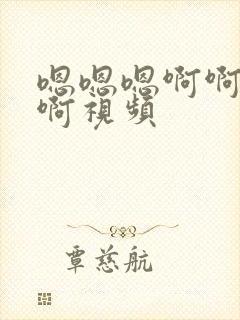 嗯嗯嗯啊啊
啊視頻
覃慈航